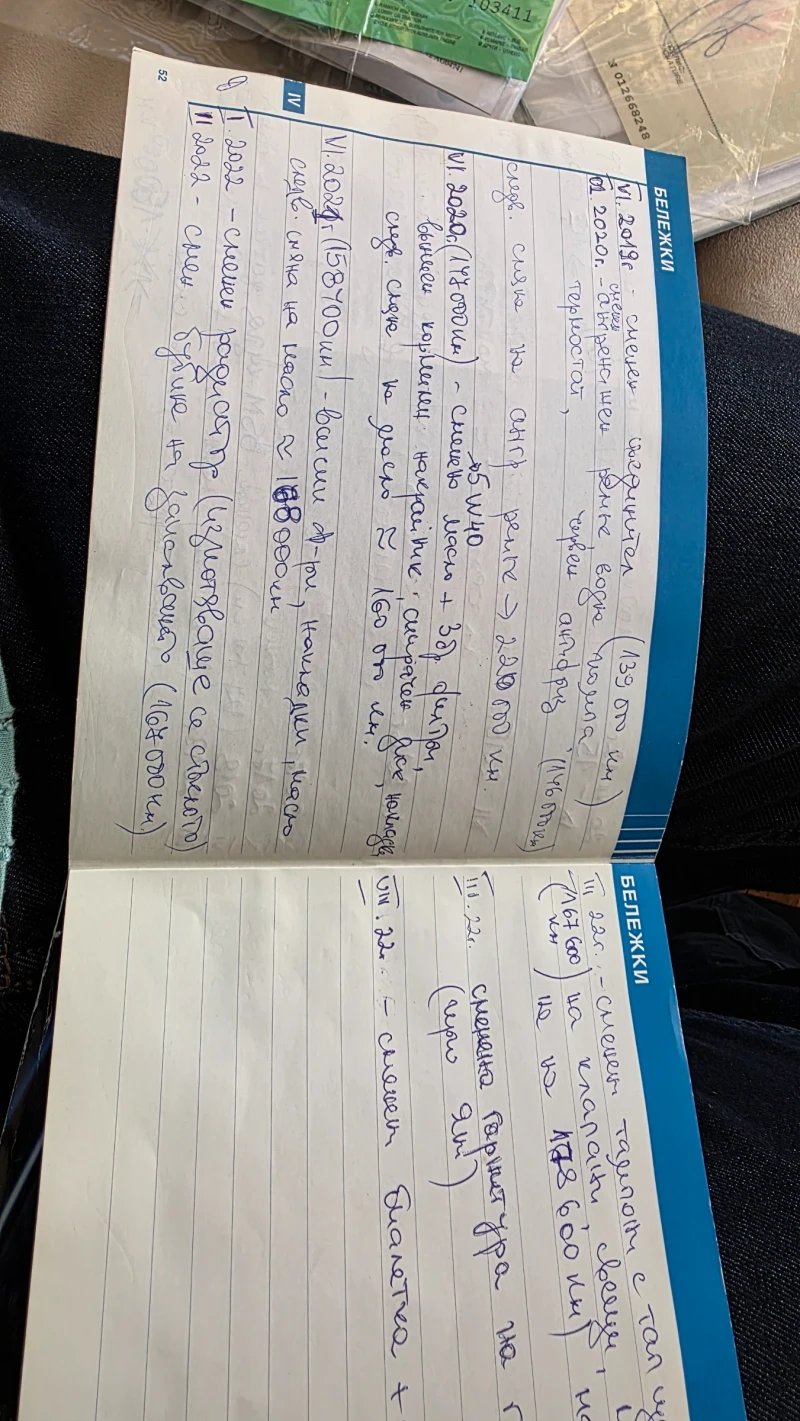 103411
№ 012668248
БЕЛЕЖКИ
VI. 2019г. - сменен съединител (139 000 км)
VI. 2020г. - сменен ангренажен ремък, водна помпа,
термостат, червен антифриз (146 000 км)
след. смяна на ангр. ремък → 220 000 км.
→ 5W40
VI. 2020г. (147 000 км) - сменено масло + 3бр. филтри,
външен кормилен накрайник, спирачен диск, накладки
след. смяна на масло ≈ 160 000 км.
VI. 2021г. (158400км) - всички ф-ри, накладки, масло
след. смяна на масло ≈ 168 000км
I. 2022 - сменен радиатор (изпотяваше се стъклото)
II 2022 - смен. бубина на запалването (167 000 км)
IV
52
БЕЛЕЖКИ
III 22г. - сменени тампони с
(167600 км) на клапани, свещи,
на 178 600 км)
III. 22г. сменена гарнитура на
VIII. 22г. - сменен биалетка +